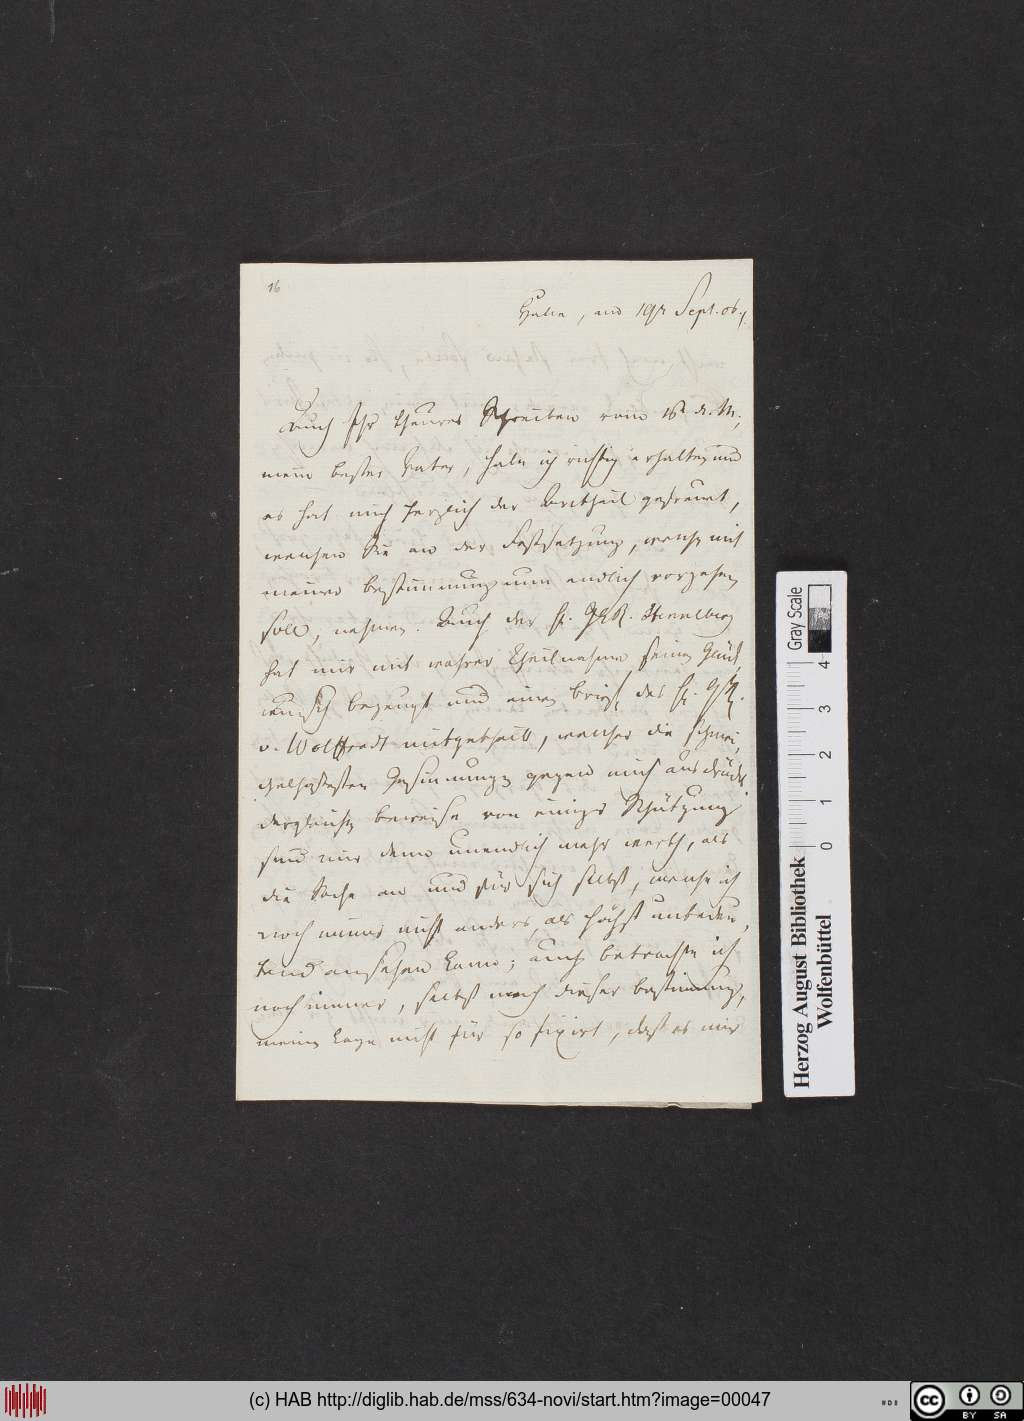 16
Halle, am 19n Sept. 06.
Auch Ihr theures Schreiben vom 16n d. M.,
mein bester Vater, habe ich richtig erhalten und
es hat mich herzlich der Antheil gefreuet,
welchen Sie an der Festsetzung, welche mit
meiner Bestimmung nun endlich vorgehen
soll, nehmen. Auch der H. GR. Henneberg
hat mir mit wahrer Theilnahme seinen Glück
wunsch bezeugt und einen Brief des H. GR.
v. Wolffradt mitgetheilt, welcher die schmei
chelhaftesten Gesinnungen gegen mich ausdrückt
dergleichen Beweise von einiger Schätzung
sind mir denn unendlich mehr werth, als
die Sache an und für sich selbst, welche ich
noch immer nicht anders, als höchst unbedeu
tend ansehen kann; auch betrachte ich
noch immer, selbst nach dieser Bestimmung,
meine Lage nicht für so fixirt, daß es mir
Gray Scale
0 1 2 3 4
Herzog August Bibliothek
Wolfenbüttel
(c) HAB http://diglib.hab.de/mss/634-novi/start.htm?image=00047
cc BY SA